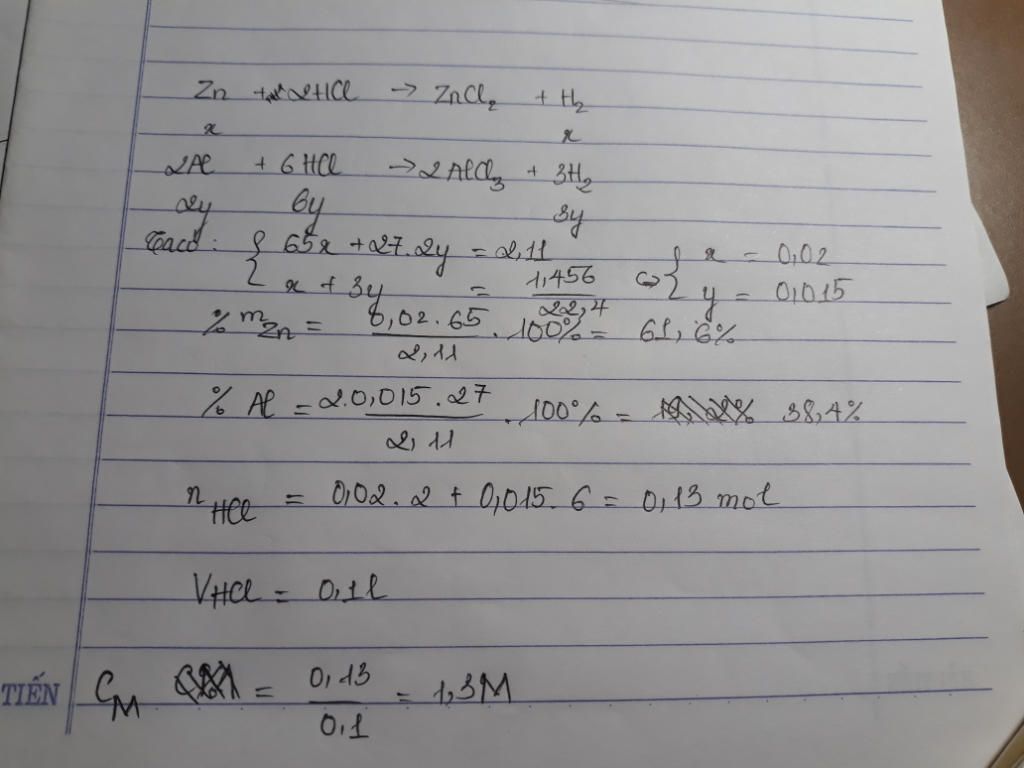 Zn + 2HCl → ZnCl₂ + H₂
x x
2Al + 6HCl → 2AlCl₃ + 3H₂
2y 6y 3y
Taco: { 65x + 27.2y = 2,11 { x = 0,02
x + 3y = 1,456/22,4 ⇔ y = 0,015
% mZn = 0,02.65/2,11 . 100% = 61,6%
% Al = 2.0,015.27/2,11 . 100% = 38,4%
nHCl = 0,02.2 + 0,015.6 = 0,13 mol
VHCl = 0,1l
TIẾN CM = 0,13/0,1 = 1,3M